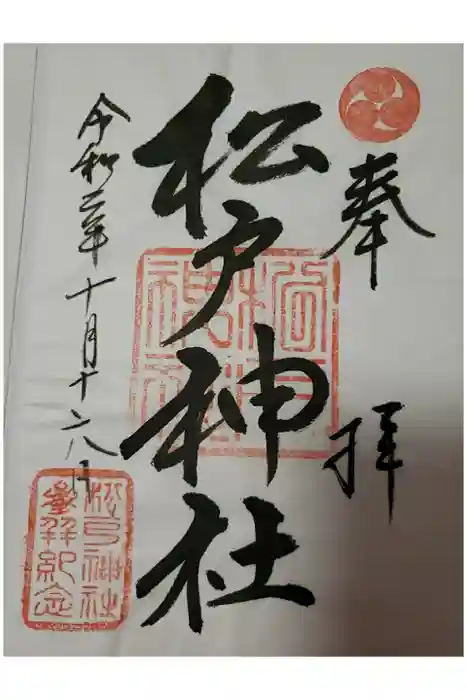 奉拝
松戸神社
令和二年十月十六日
松戸神社
參拜紀念